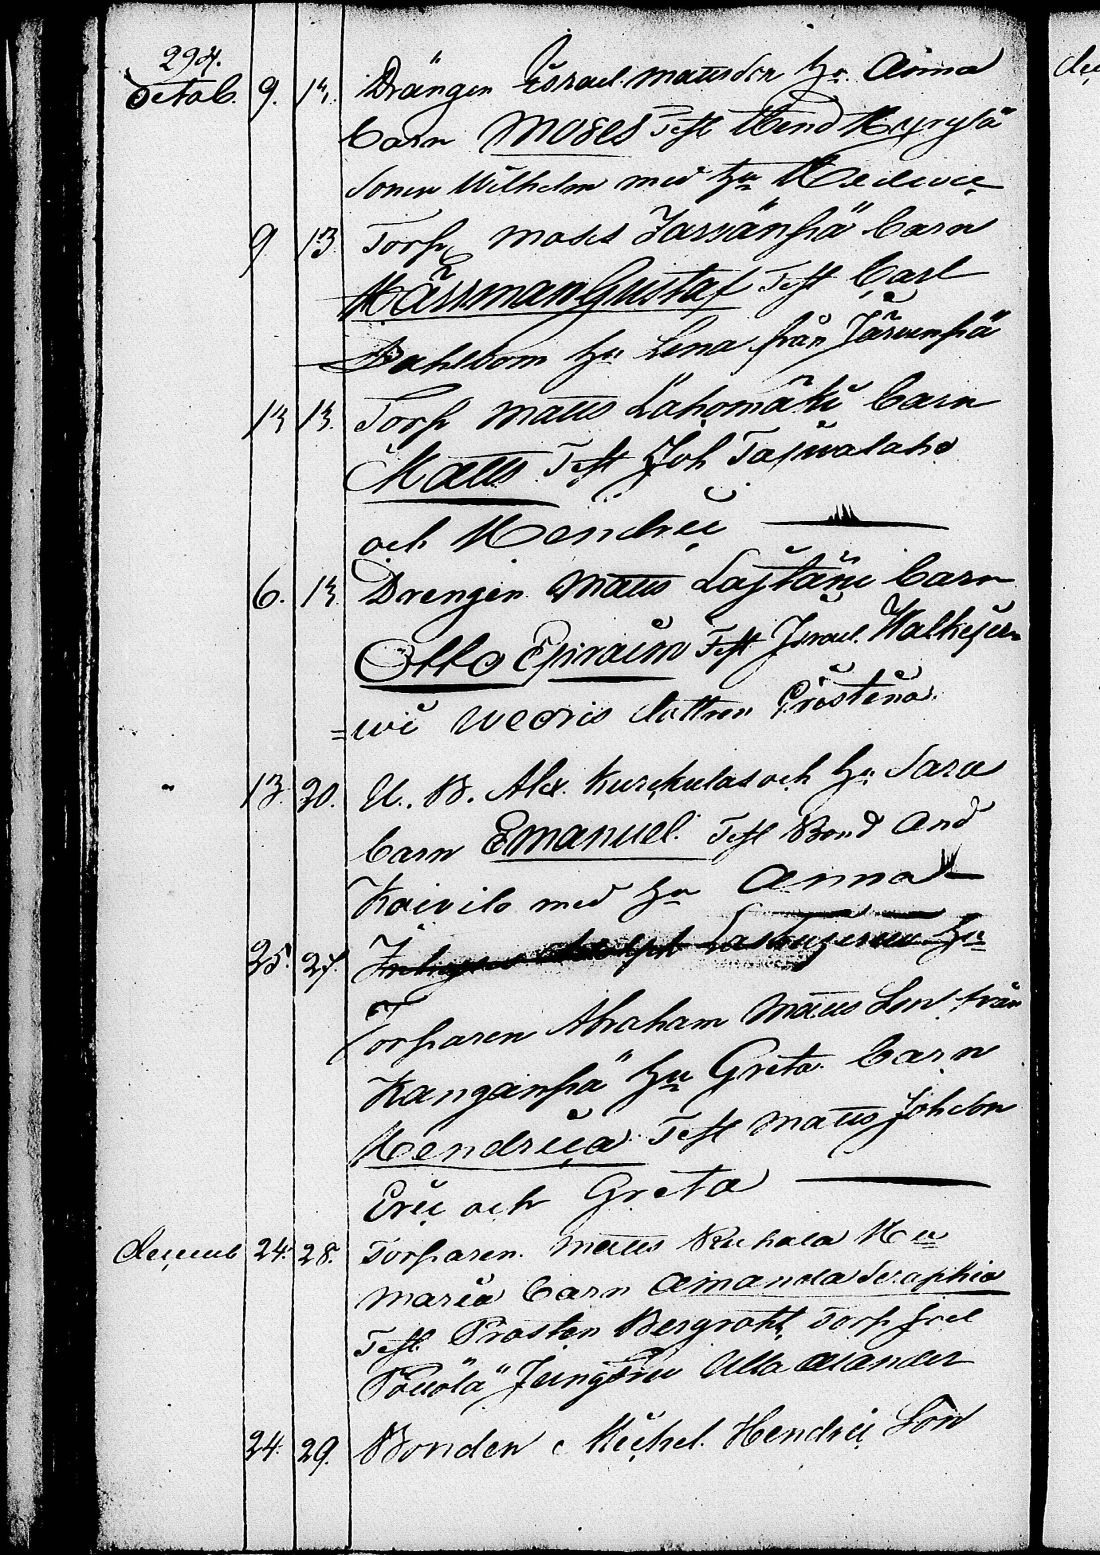 294.
Octob. 9. 13. Drängen Essrael Mattsson hu Anna
barn Moses Test Hend Hyrylä
Sonen Wilhelm med hu Hedvic
9 13 Torp Moses Jarsänpä barn
Härsman Gustaf Test Carl
Dahlbom hu Lena från Järvenpä
13 13. Torp Matts Lahomäki barn
Matts Test Joh Tajvalaho
och Hendric
6. 13. Drengen Matts Lajtäni barn
Otto Epiraim Test Jsrael Walkejer=
=wi och dottren Cristina
13. 20. U. B. Alex. Kurckulas och hu Sara
barn Emanuel Test Bond And
Koivilo med hu Anna
25. 27. hu
Torparen Abraham Matts Son från
Kanganpä hu Greta barn
Hendrica Test Matts Johan
Eric och Greta
decemb 24. 28. Torparen Matts Ruhala Hu
Maria barn Amanda Seraphia
Test Prosten Bergroht, Torp
Jungfru Ulla Alander
24. 29. Bonden Michel Hendric Son